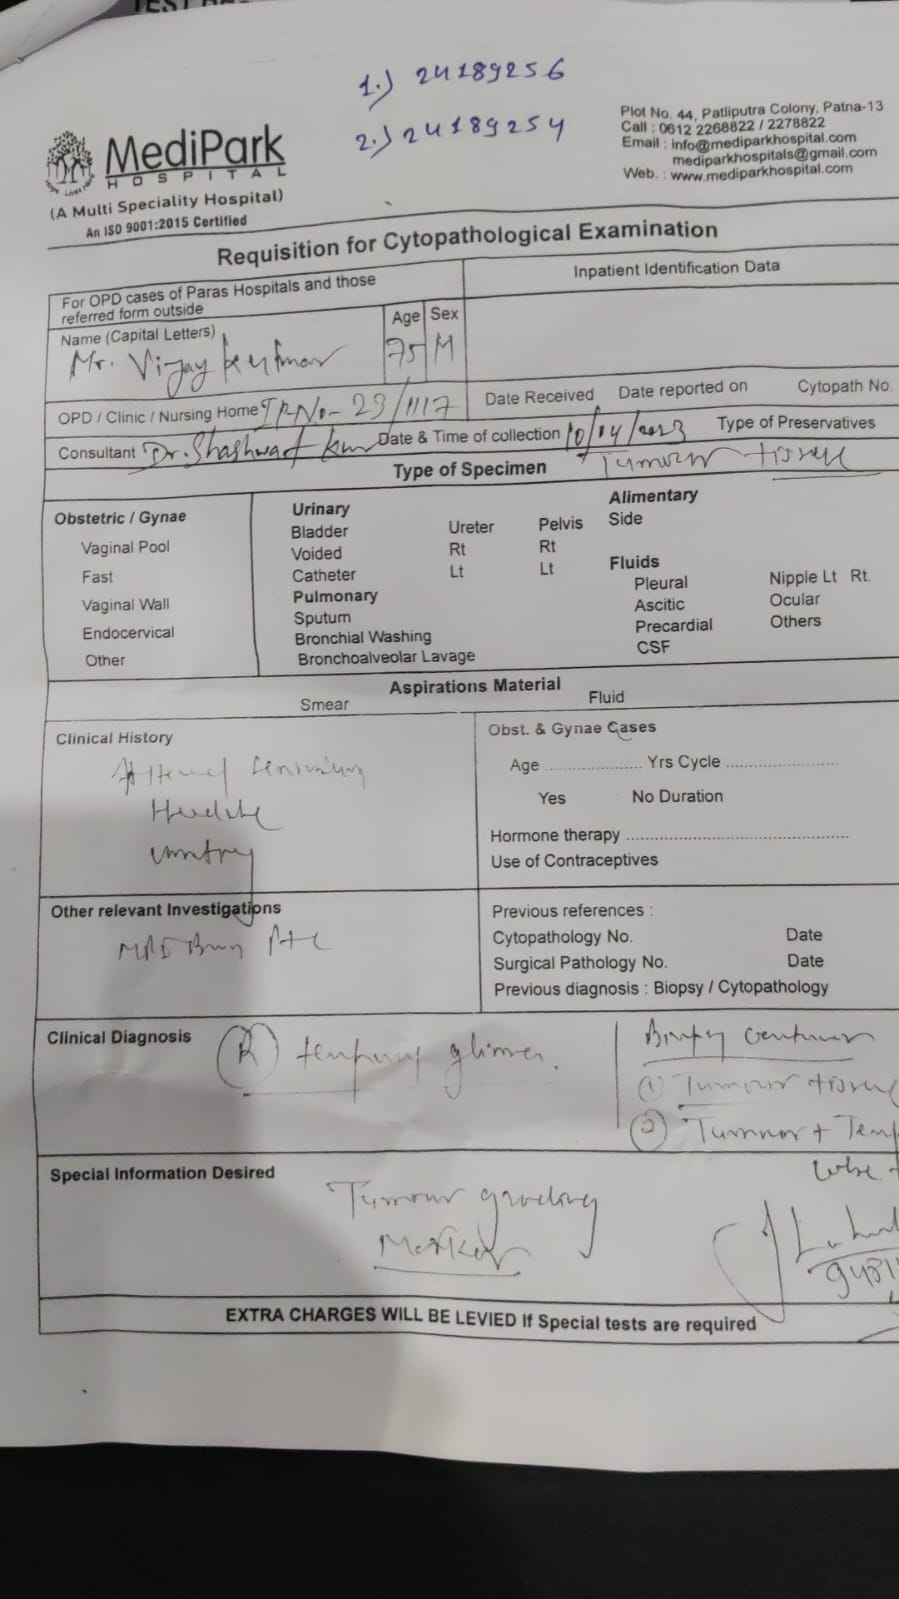 1.) 24189256
2.) 24189254
MediPark
HOSPITAL
(A Multi Speciality Hospital)
An ISO 9001:2015 Certified
Plot No. 44, Patliputra Colony, Patna-13
Call : 0612 2268822 / 2278822
Email : info@mediparkhospital.com
mediparkhospitals@gmail.com
Web. : www.mediparkhospital.com
Requisition for Cytopathological Examination
For OPD cases of Paras Hospitals and those
referred form outside
Inpatient Identification Data
Name (Capital Letters)
Age Sex
Mr. Vijay Kumar 75 M
OPD / Clinic / Nursing Home IP No- 23/1117
Date Received Date reported on Cytopath No.
Consultant Dr. Shashwat Date & Time of collection 10/04/2023 Type of Preservatives
Type of Specimen Tumour tissue
Obstetric / Gynae
Vaginal Pool
Fast
Vaginal Wall
Endocervical
Other
Urinary
Bladder Ureter Pelvis
Voided Rt Rt
Catheter Lt Lt
Pulmonary
Sputum
Bronchial Washing
Bronchoalveolar Lavage
Alimentary
Side
Fluids
Pleural Nipple Lt Rt.
Ascitic Ocular
Precardial Others
CSF
Aspirations Material
Smear Fluid
Clinical History
Obst. & Gynae Cases
Age ...................... Yrs Cycle .........................
Yes No Duration
Hormone therapy ..................................................
Use of Contraceptives
Other relevant Investigations
MRI
Previous references :
Cytopathology No. Date
Surgical Pathology No. Date
Previous diagnosis : Biopsy / Cytopathology
Clinical Diagnosis
(R) glioma.
Biopsy
(1) Tumour tissue
(2) Tumour + Temp
Special Information Desired
Tumour grading
Marker
EXTRA CHARGES WILL BE LEVIED If Special tests are required